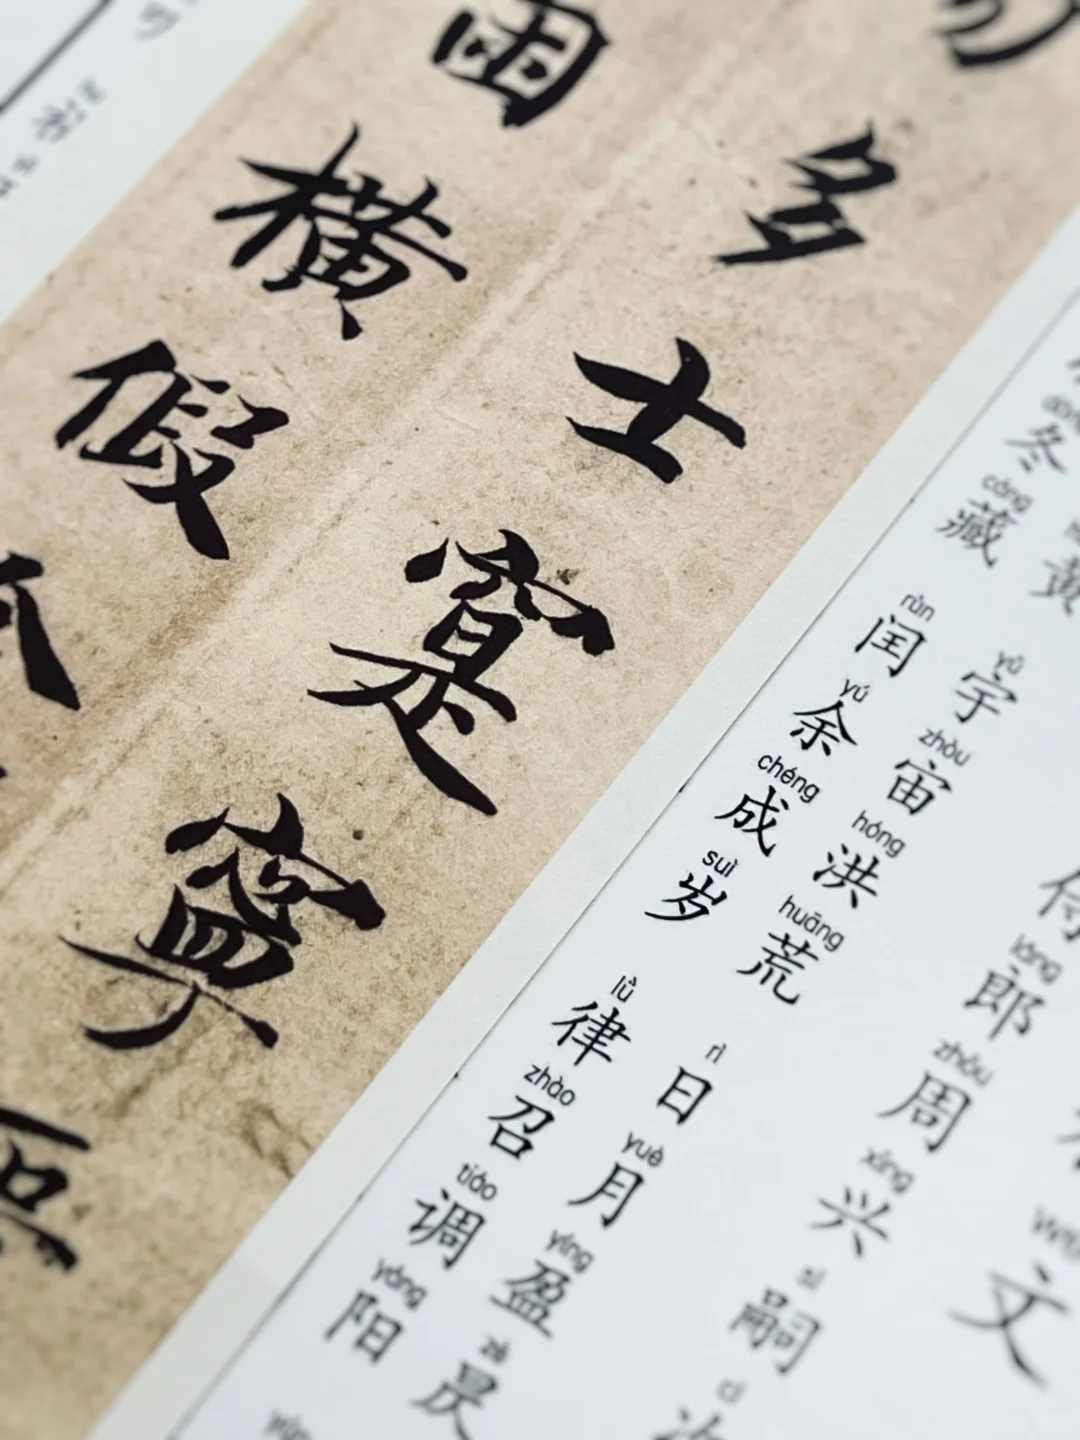 文
láng zhōu xīng sì cì
侍郎周兴嗣次
yǔ zhòu hóng huāng rì yuè yíng zè
黄宇宙洪荒 日月盈昃
dōng cáng rùn yú chéng suì lǜ zhào tiáo yáng
冬藏 闰余成岁 律召调阳
多士寔寧
困横
假